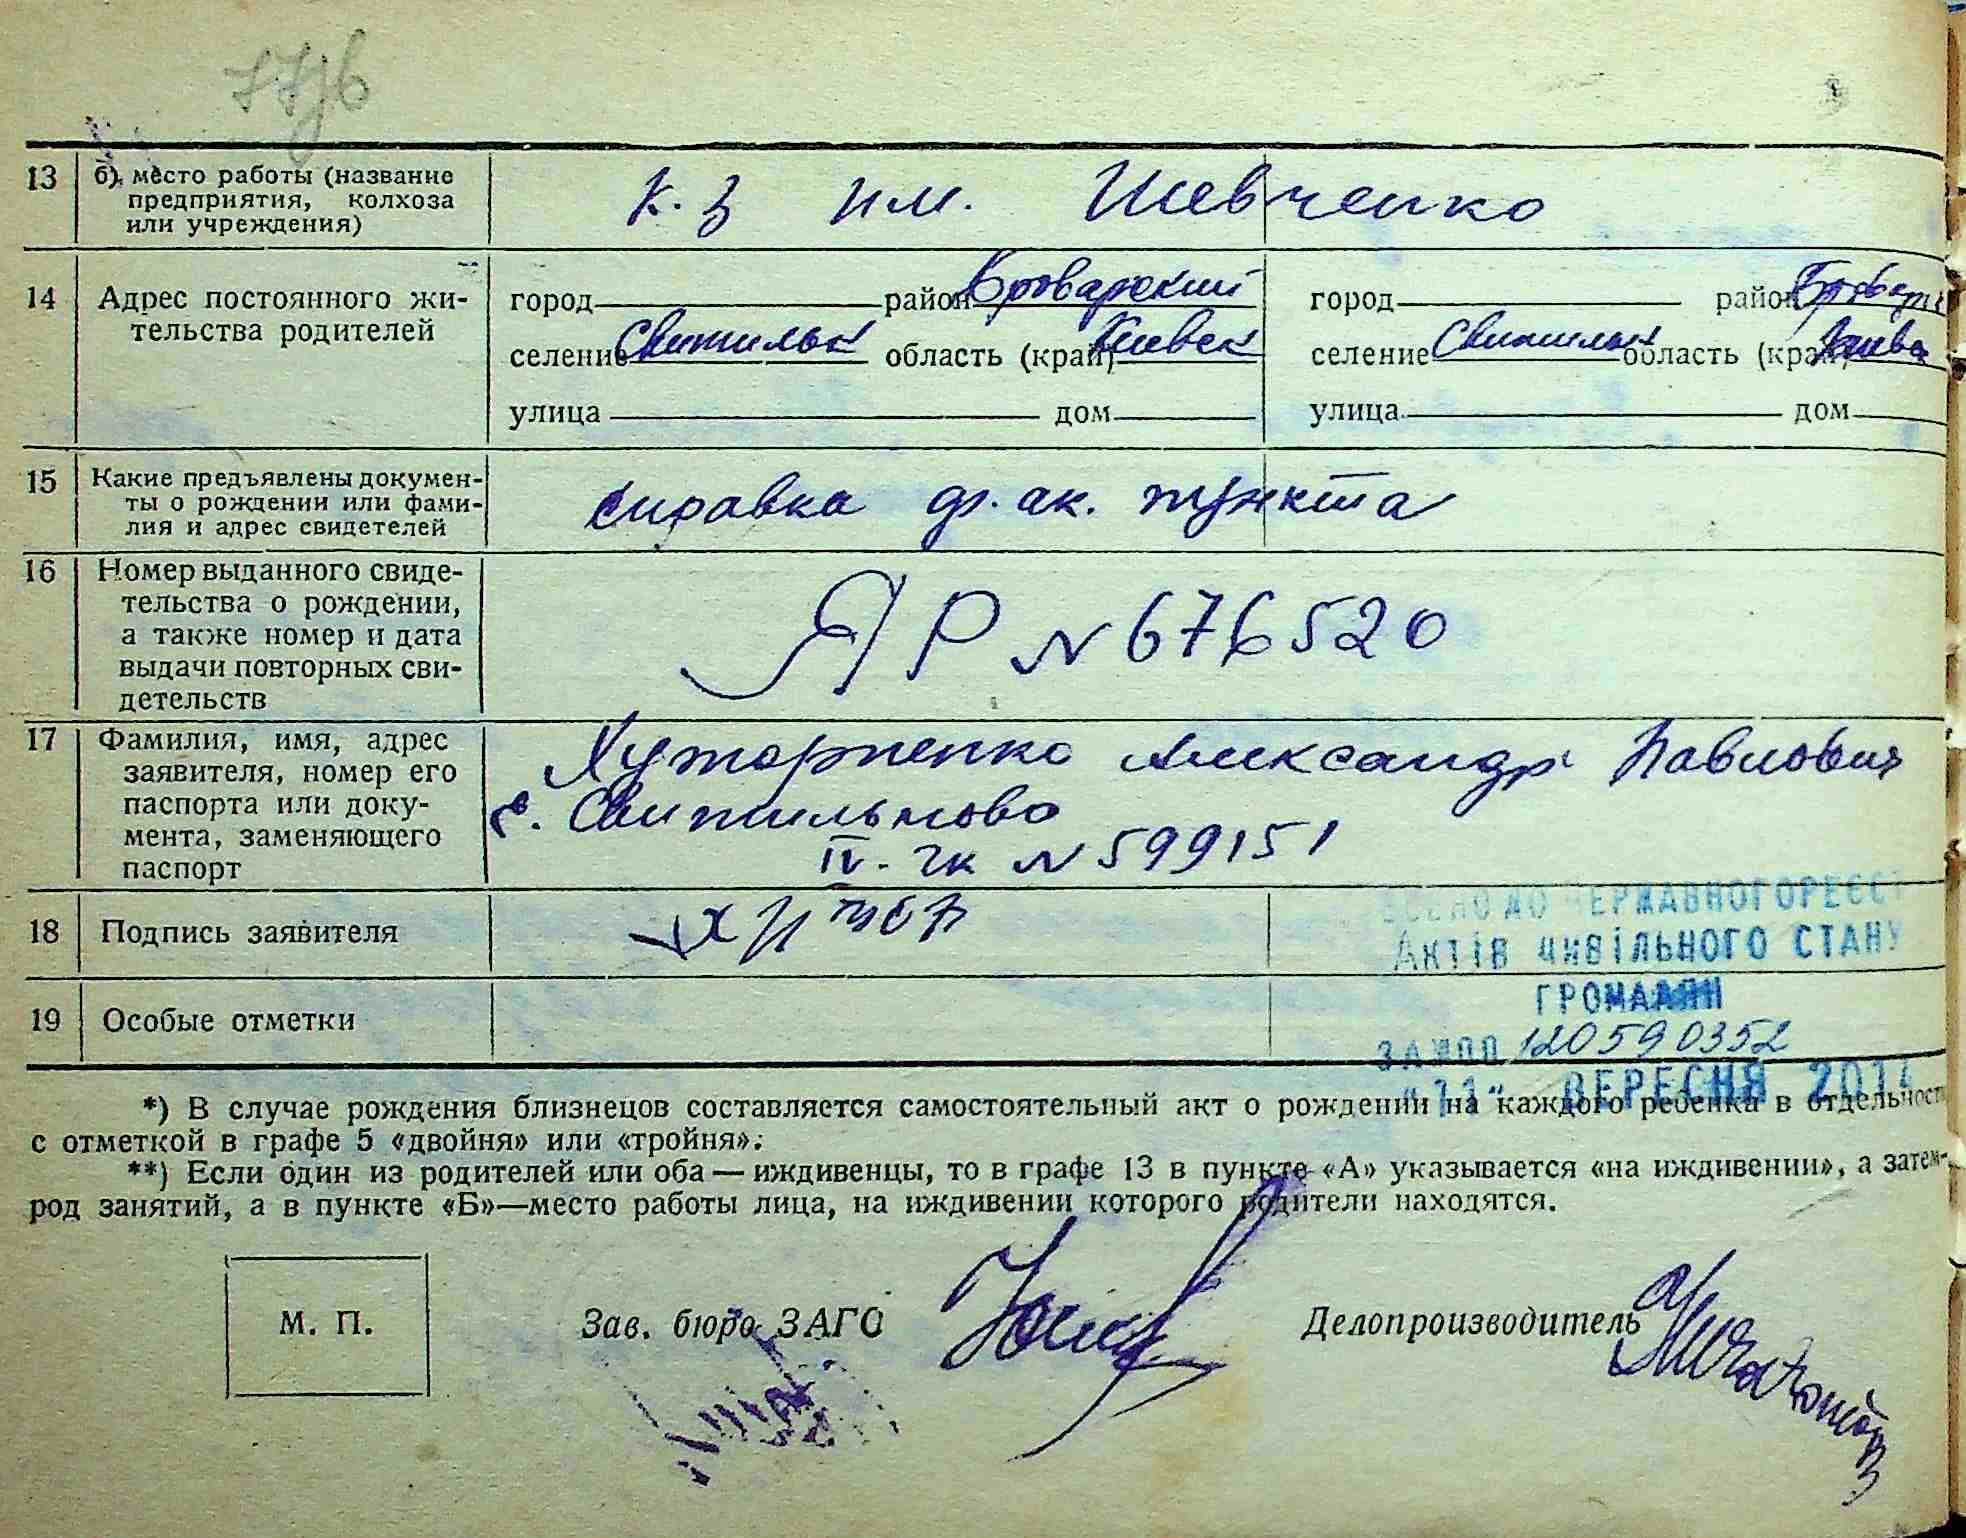 13 б) место работы (название
предприятия, колхоза
или учреждения)
к. з им. Шевченко
14 Адрес постоянного жи-
тельства родителей
город район Броварский город район
селение Свитильн область (край) Киевск селение Свитильн область (край)
улица дом улица дом
15 Какие предъявлены докумен-
ты о рождении или фами-
лия и адрес свидетелей
справка ф. ак. пункта
16 Номер выданного свиде-
тельства о рождении,
а также номер и дата
выдачи повторных сви-
детельств
ЯР N 676520
17 Фамилия, имя, адрес
заявителя, номер его
паспорта или доку-
мента, заменяющего
паспорт
Александр Павлович
с. Свитильново
IV - чк N 599151
18 Подпись заявителя
19 Особые отметки
ДО ДЕРЖАВНОГО РЕЄСТ
АКТІВ ЦИВІЛЬНОГО СТАНУ
ГРОМАДЯН
120590352
"11" ВЕРЕСНЯ 2014
*) В случае рождения близнецов составляется самостоятельный акт о рождении на каждого ребенка в отдельност
с отметкой в графе 5 «двойня» или «тройня».
**) Если один из родителей или оба — иждивенцы, то в графе 13 в пункте «А» указывается «на иждивении», а затем-
род занятий, а в пункте «Б»—место работы лица, на иждивении которого родители находятся.
М. П. Зав. бюро ЗАГС Делопроизводитель